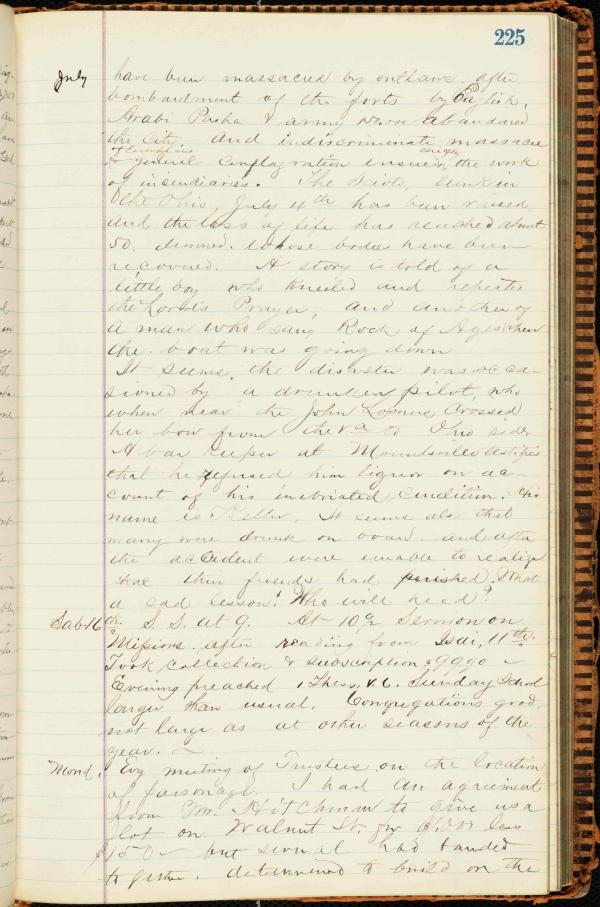 225
July have been massacred by outlaws after
bombardment of the forts by English.
Arabi Pasha & army abandoned
the City. And indiscriminate massacre
of Europeans chiefly
& general Conflagration ensued, the work
of insendiaries. The Scioto, sunk in
the Ohio July 4th has been raised
and the loss of life has reached about
50. drowned. whose bodies have been
recovered. A story is told of a
little boy who kneeled and repeated
the Lord's Prayer, and another of
a man who sang Rock of Ages when
the boat was going down
It seems the disaster was occa-
sioned by a drunken pilot, who
when near the John Lomas Crossed
her bow from the Va to Ohio side
A bar keeper at Moundsville testifies
that he refused him liquor on ac-
count of his inebriated Condition. His
name is Keller. It seems also that
many were drunk on board and after
the accident were unable to realize
that their friends had perished. What
a sad lesson! Who will heed?
Sab 16th. S. S. at 9. At 10 Sermon on
Missions after reading from Isai, 11th.
Took Collection & subscription $99.90
Evening preached 1 Thess. V. 6. Sunday School
larger than usual. Congregations good,
not large as at other seasons of the
year.
Mond. Evg meeting of Trustees on the location
of parsonage. I had an agreement
from Hitchman to give us a
lot on Walnut St. for $1.000 less
$150 but several had banded
together. determined to build on the